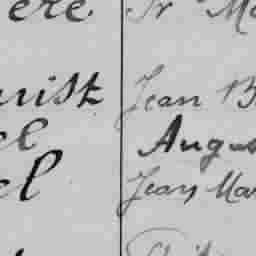 ere Fr Ma
urist Jean B
el Augus
el Jean Mar